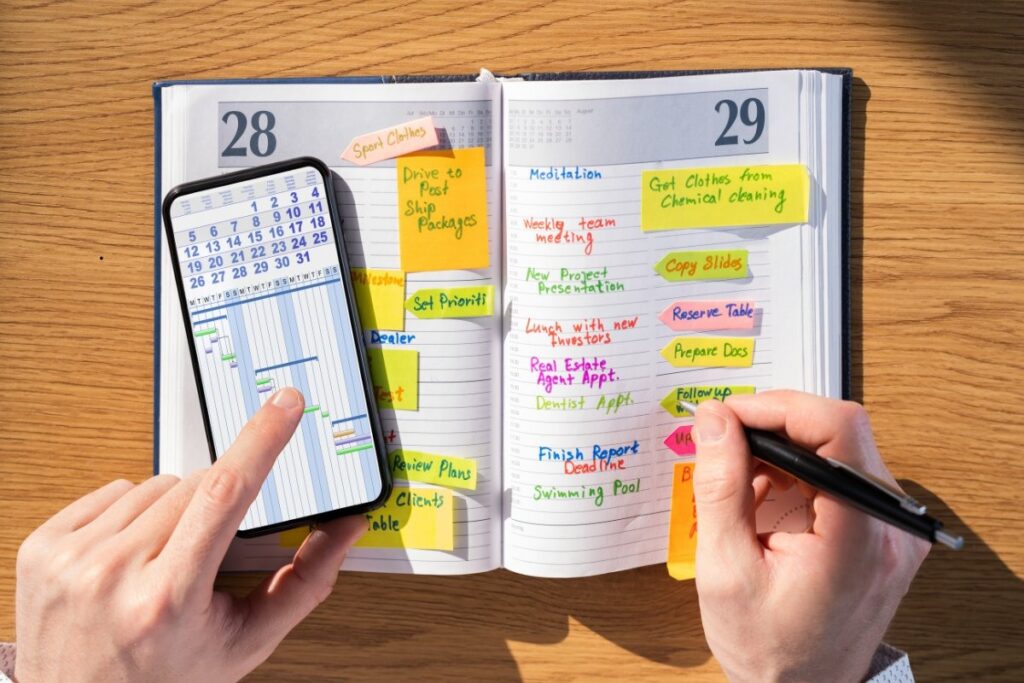 28
Sport Clothes
Drive to
Post
Ship
Packages
Milestone
Set Prioriti
Dealer
Test
Review Plans
Clients
Table
1 2 3 4
5 6 7 8 9 10 11
12 13 14 15 16 17 18
19 20 21 22 23 24 25
26 27 28 29 30 31
M T W T F S S M T W T F S S
August
29
Meditation
Get Clothes from
Chemical cleaning
Weekly team
meeting
Copy Slides
New Project
Presentation
Reserve Table
Lunch with new
Investors
Prepare Docs
Real Estate
Agent Appt.
Follow up
Dentist Appt.
UP
Finish Report
Deadline
Swimming Pool
B